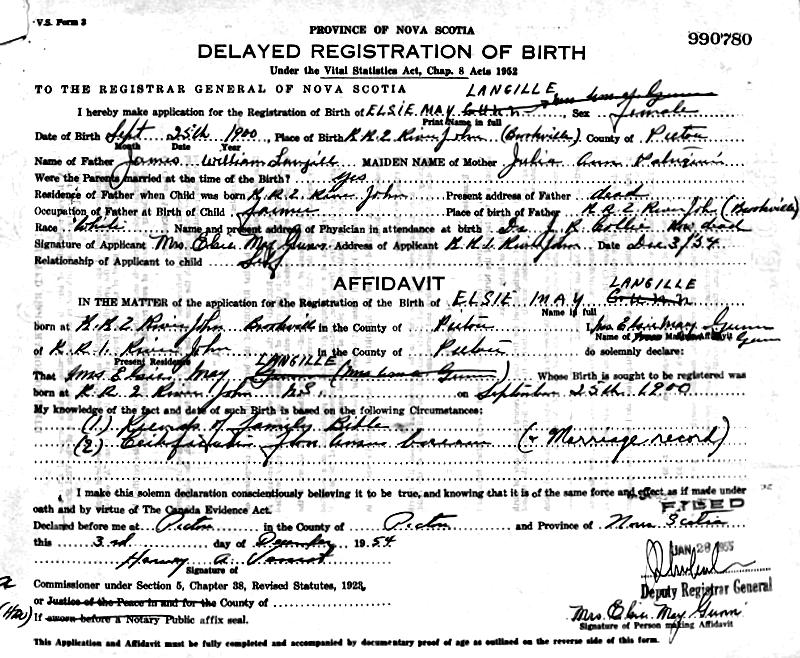 V.S. Form 3
PROVINCE OF NOVA SCOTIA
990780
DELAYED REGISTRATION OF BIRTH
Under the Vital Statistics Act, Chap. 8 Acts 1952
TO THE REGISTRAR GENERAL OF NOVA SCOTIA LANGILLE
I hereby make application for the Registration of Birth of ELSIE MAY Gunn Sex female
Print Name in full
Date of Birth Sept 25th 1900 Place of Birth R.R.2 River John (Brookville) County of Pictou
Month Date Year
Name of Father James William Langill MAIDEN NAME of Mother Julia Ann
Were the Parents married at the time of the Birth? yes
Residence of Father when Child was born R.R.2. River John Present address of Father dead
Occupation of Father at Birth of Child farmer Place of birth of Father R.R.2 River John (Brookville)
Race White Name and present address of Physician in attendance at birth Dr. J. R. Collie Now dead
Signature of Applicant Mrs. Elsie May Gunn Address of Applicant R.R.1. River John Date Dec 3/54
Relationship of Applicant to child Self
AFFIDAVIT LANGILLE
IN THE MATTER of the application for the Registration of the Birth of ELSIE MAY Gunn
Name in full
born at R.R.2 River John Brookville in the County of Pictou I, Mrs Elsie May Gunn
Name of Person Making Affidavit Gunn
of R.R.1. River John in the County of Pictou do solemnly declare:
Present Residence LANGILLE
That Mrs Elsie May Gunn (Mrs Gunn) Whose Birth is sought to be registered was
born at R.R.2 River John N.S. on September 25th 1900
My knowledge of the fact and date of such Birth is based on the following Circumstances:
(1.) Records of family Bible
(2.) Certificate from bureau (& Marriage record)
I make this solemn declaration conscientiously believing it to be true, and knowing that it is of the same force and effect as if made under
oath and by virtue of The Canada Evidence Act.
FILED
Declared before me at Pictou in the County of Pictou and Province of Nova Scotia
this 3rd day of December 1954
JAN 28 1955
Harvey A.
Signature of
Deputy Registrar General
Commissioner under Section 5, Chapter 38, Revised Statutes, 1923,
or Justice of the Peace in and for the County of
Mrs. Elsie May Gunn
If sworn before a Notary Public affix seal.
Signature of Person making Affidavit
This Application and Affidavit must be fully completed and accompanied by documentary proof of age as outlined on the reverse side of this form.